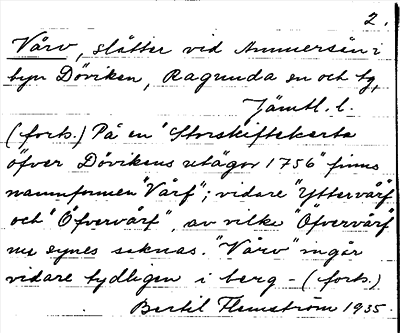 2.
Vårv, slåtter vid Ammersån i
byn Döviken, Ragunda sn och tg,
Jämtl. l.
(forts.) På en "Storskifteskarta
öfver Dövikens utägor 1756" finns
namnformen "Vårf"; vidare "Yttervårf"
och "Öfvervårf", av vilka "Öfvervårf"
nu synes saknas. "Vårv" ingår
vidare tydligen i berg - (forts.)
Bertil Flemström 1935.